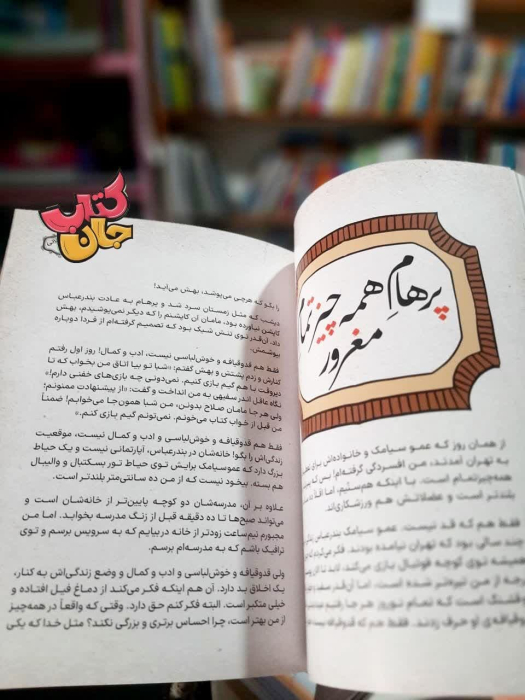 کتاب
جان
پرهام همه چیز تمام
مغرور
از همان روز که عمو سیامک و خانواده‌اش برای
به تهران آمدند، من افسردگی گرفته‌ام! پس که
همه‌چیزتمام است. با اینکه هم‌سنیم، اما
بلندتر است و عضلاتش هم ورزشکاری‌اند
فقط هم که قد نیست. عمو سیامک بندرعباس
چند سالی بود که تهران نیامده بودند. فکر می‌کردم
همیشه توی کوچه فوتبال بازی می‌کند،
درجه از من تیره‌تر شده است. اما آن‌قدر سفید
و قشنگ است که تمام نوروز هر جا رفتیم
و قیافه‌ی او حرف زدند. فقط هم که قدوقیافه
را بگو که هرچی می‌پوشد، بهش می‌آید!
دیشب که مثل زمستان سرد شد و پرهام به عادت بندرعباس
کاپشن نیاورده بود، مامان آن کاپشنم را که دیگر نمی‌پوشیدم، بهش
داد. آن‌قدر توی تنش شیک بود که تصمیم گرفته‌ام از فردا دوباره
بپوشمش.
فقط هم قدوقیافه و خوش‌لباسی نیست، ادب و کمال! روز اول رفتم
کنارش و زدم پشتش و بهش گفتم: «شبا تو بیا اتاق من بخواب که تا
دیروقت با هم گیم بازی کنیم. نمی‌دونی چه بازی‌های خفنی دارم!»
نگاه عاقل اندر سفیهی به من انداخت و گفت: «از پیشنهادت ممنونم!
ولی هر جا مامان صلاح بدونن، من شبا همون‌جا می‌خوابم! ضمناً
من قبل از خواب کتاب می‌خونم. نمی‌تونم گیم بازی کنم.»
فقط هم قدوقیافه و خوش‌لباسی و ادب و کمال نیست، موقعیت
زندگی‌اش را بگو! خانه‌شان در بندرعباس، آپارتمانی نیست و یک حیاط
بزرگ دارد که عموسیامک برایش توی حیاط تور بسکتبال و والیبال
هم بسته. بیخود نیست که از من ده سانتی‌متر بلندتر است.
علاوه بر آن، مدرسه‌شان دو کوچه پایین‌تر از خانه‌شان است و
می‌تواند صبح‌ها تا ده دقیقه قبل از زنگ مدرسه بخوابد. اما من
مجبورم نیم‌ساعت زودتر از خانه در بیایم که به سرویس برسم و توی
ترافیک باشم که به مدرسه‌ام برسم.
ولی قدوقیافه و خوش‌لباسی و ادب و کمال و وضع زندگی‌اش به کنار،
یک اخلاق بد دارد. آن هم اینکه فکر می‌کند از دماغ فیل افتاده و
خیلی متکبر است. البته فکر کنم حق دارد. وقتی که واقعاً در همه‌چیز
از من بهتر است، چرا احساس برتری و بزرگی نکند؟ مثل خدا که یکی